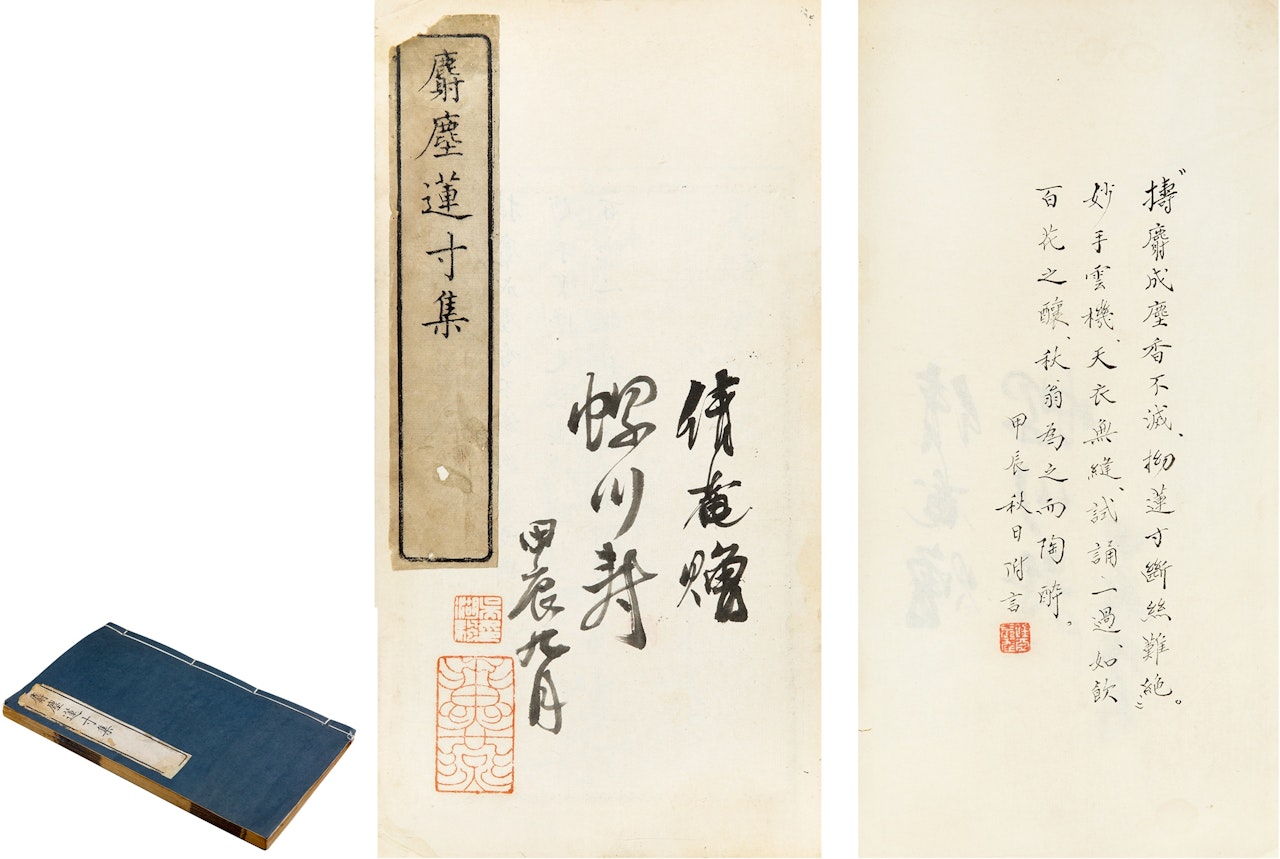 麝塵蓮寸集
麝塵蓮寸集
倩菴贈
蝶川壽
甲辰九月
"擣麝成塵香不滅、拗蓮寸斷絲難絶。"
妙手雲機、天衣無縫、試誦一過、如飲
百花之釀、秋翁為之而陶醉。
甲辰秋日附言